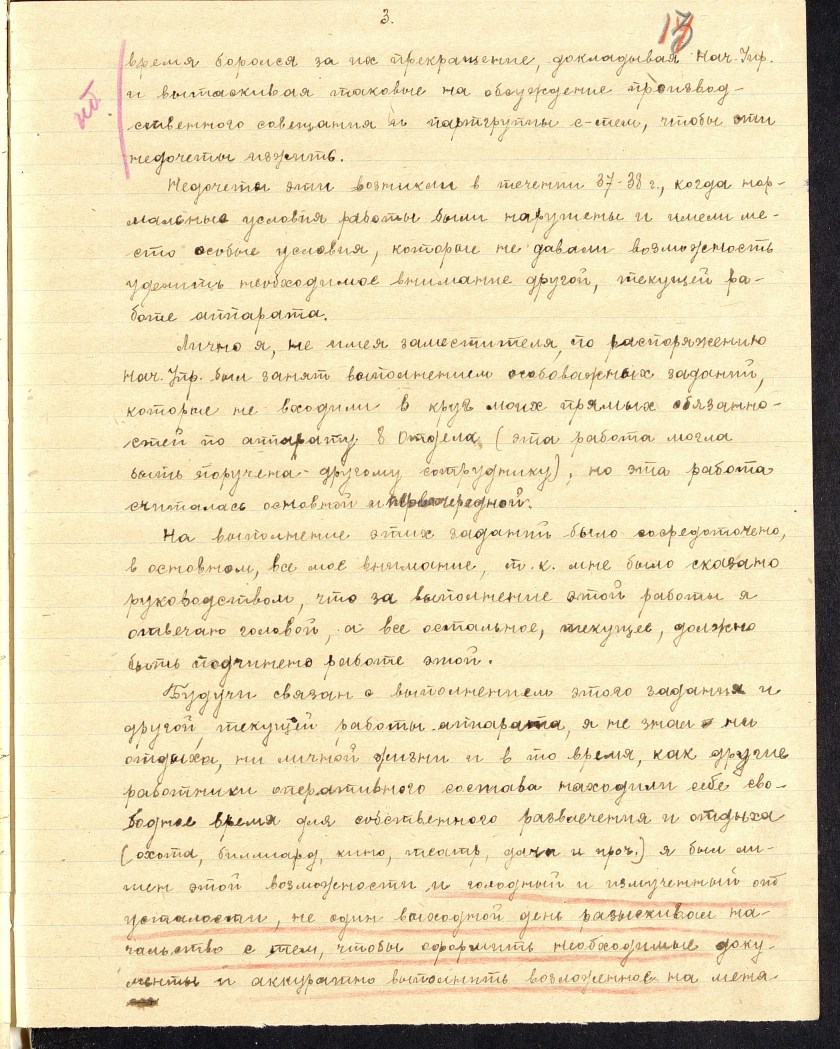 3.
17
время боролся за их прекращение, докладывая Нач. Упр.
и вытаскивая таковые на обсуждение производ-
ственного совещания и партгруппы с-тем, чтобы эти
недочеты изжить.
Недочеты эти возникли в течении 37-38 г., когда нор-
мальные условия работы были нарушены и имели ме-
сто особые условия, которые не давали возможность
уделить необходимое внимание другой, текущей ра-
боте аппарата.
Лично я, не имея заместителя, по распоряжению
Нач. Упр. был занят выполнением особоважных заданий,
которые не входили в круг моих прямых обязанно-
стей по аппарату 8 Отдела (эта работа могла
быть поручена другому сотруднику), но эта работа
считалась основной и первоочередной.
На выполнение этих заданий было сосредоточено,
в основном, все мое внимание, т. к. мне было сказано
руководством, что за выполнение этой работы я
отвечаю головой, а все остальное, текущее, должно
быть подчинено работе этой.
Будучи связан с выполнением этого задания и
другой текущей работы аппарата, я не знал ни
отдыха, ни личной жизни и в то время, как другие
работники оперативного состава находили себе сво-
бодное время для собственного развлечения и отдыха
(охота, биллиард, кино, театр, дачи и проч.) я был ли-
шен этой возможности и голодный и измученный от
усталости, не один выходной день разыскивал на-
чальство с тем, чтобы оформить необходимые доку-
менты и аккуратно выполнить возложенное на меня